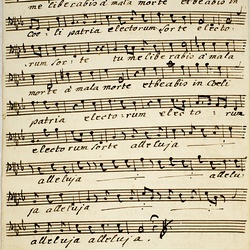 me libe rabis à mala morte et beabis in
Coe : li patria electorum sorte electo :
rum sor : te tu me libe rabis à mala
morte à mala morte et beabis in Coeli
patria elect o : rum elec to : rum
electorum sorte alleluja
alleluja allelu :
ja alleluja
alleluja alleluja .